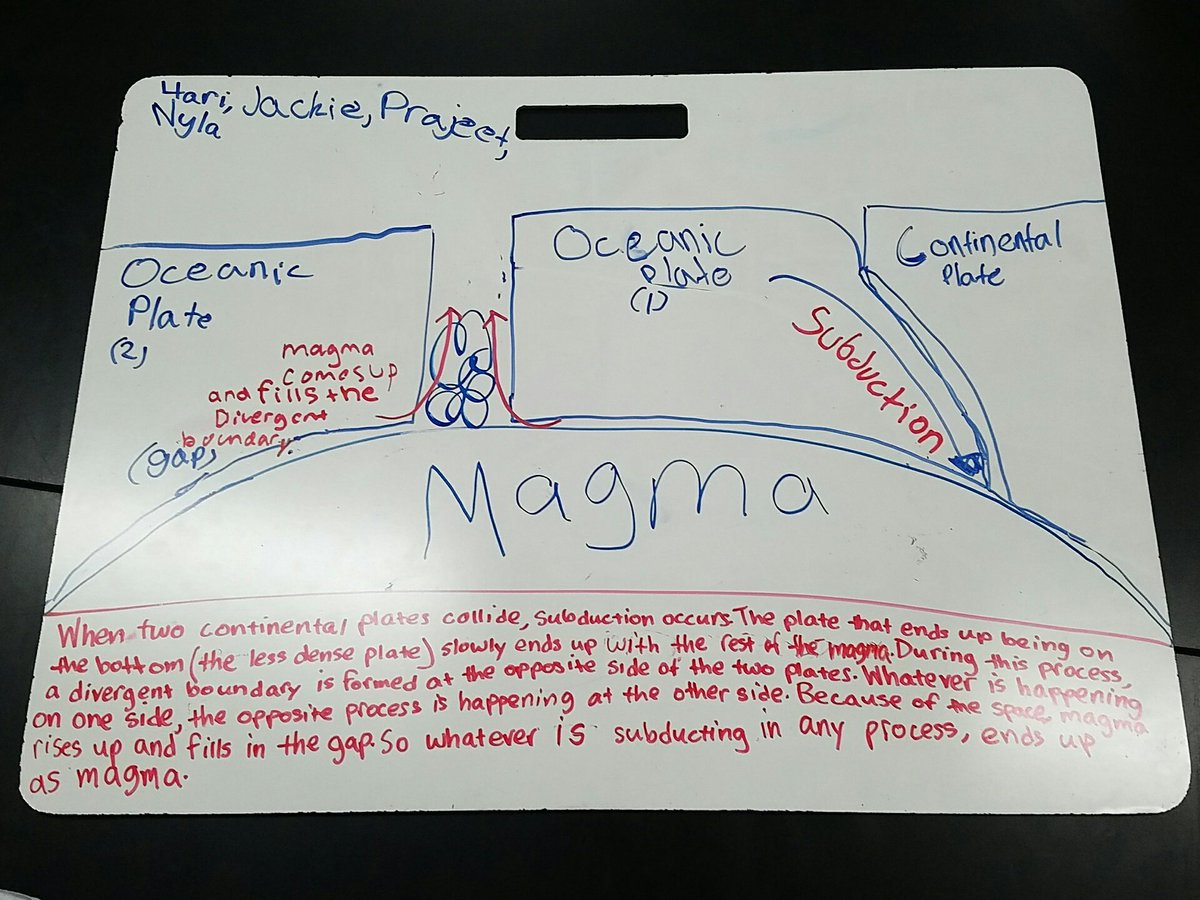 Hari, Jackie, Prajeet,
Nyla
Oceanic
Plate
(2)
magma
comes up
and fills the
Divergent
boundary.
(gap)
Oceanic
plate
(1)
Subduction
Continental
Plate
Magma
When two continental plates collide, subduction occurs. The plate that ends up being on
the bottom (the less dense plate) slowly ends up with the rest of the magma. During this process,
a divergent boundary is formed at the opposite side of the two plates. Whatever is happening
on one side, the opposite process is happening at the other side. Because of the space, magma
rises up and fills in the gap. So whatever is subducting in any process, ends up
as magma.